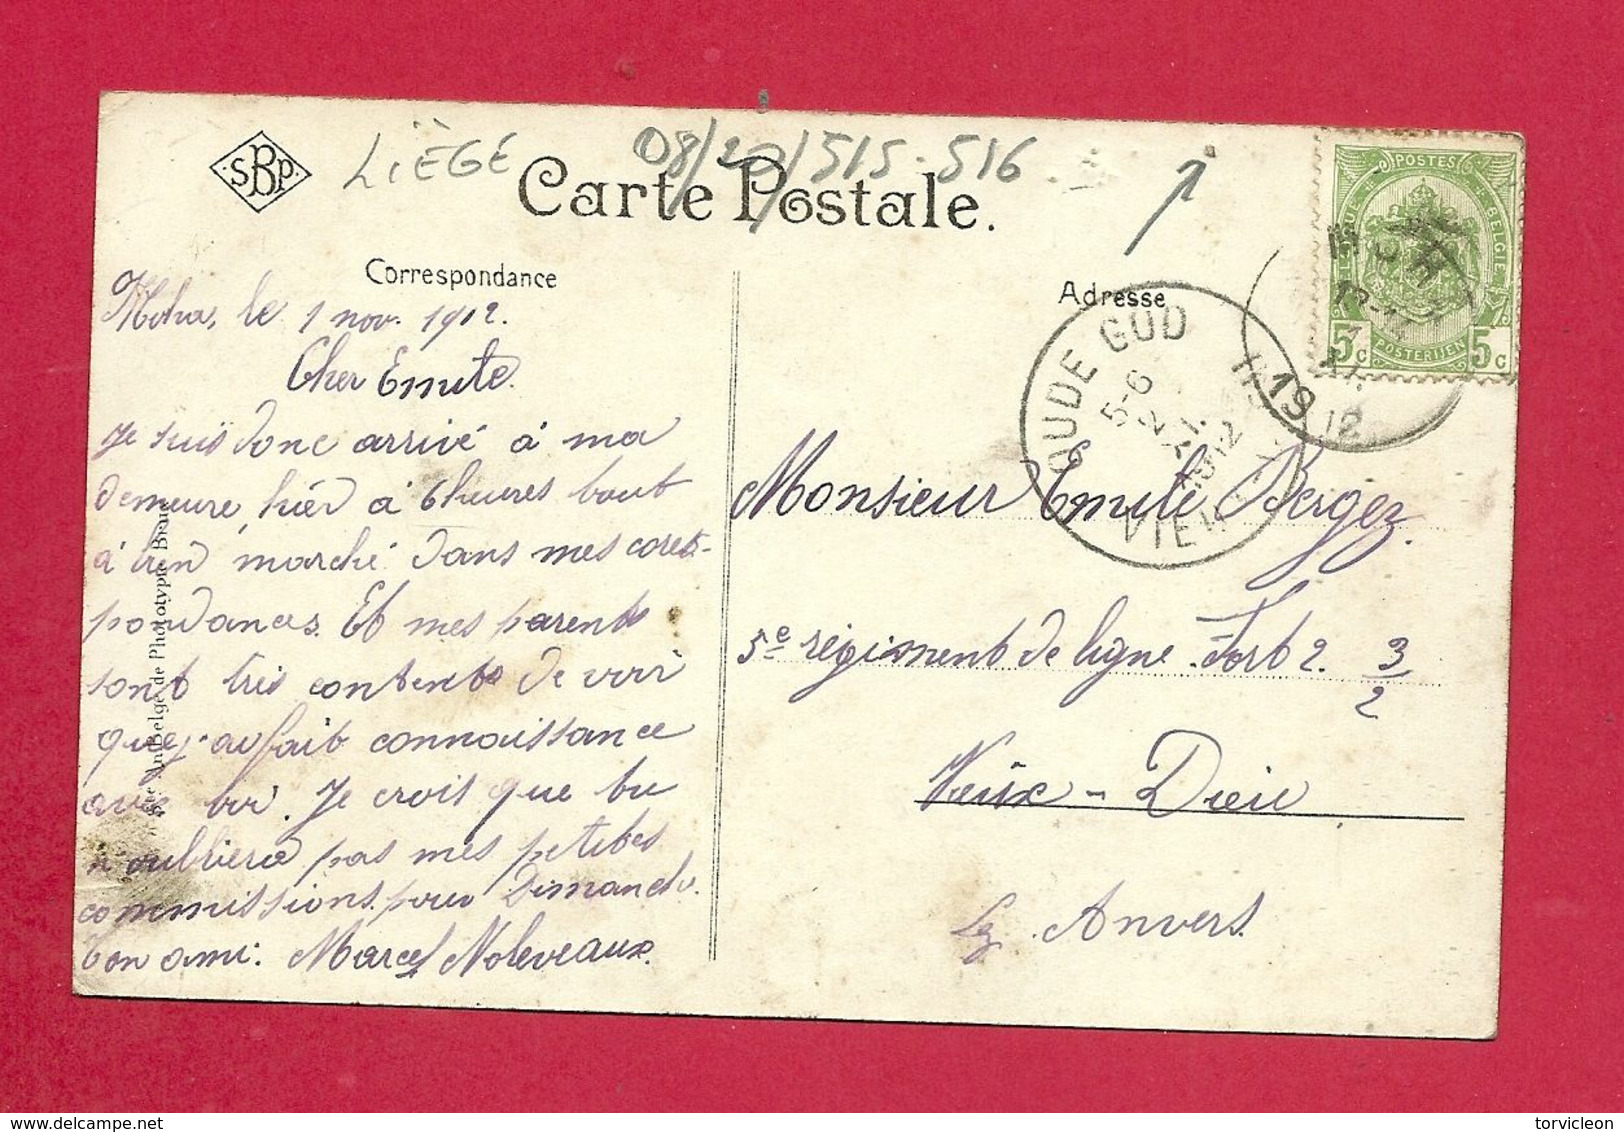 SBP
LIÈGE
08/20/515-516
Carte Postale.
Correspondance
Adresse
Moha, le 1 nov. 1912.
Cher Emile.
Je suis donc arrivé à ma
demeure, hier à 6 heures tout
à bien marché dans mes cores-
pondances. Et mes parents
sont très contents de voir
que j'ai fait connaissance
avec toi. Je crois que tu
n'oubliera pas mes petites
commissions pour Dimanche.
bon ami. Marcel
Sté An Belge de Phototypie
POSTES
BELGIQUE BELGIE
5c POSTERIJEN 5c
HUY
1912
OUDE GOD
5-6
2 XI.
1912
VIEUX
Monsieur Emile Bergez.
5e régiment de ligne. Fort 2. 3/2
Vieux-Dieu
Lez Anvers.
torvicleon